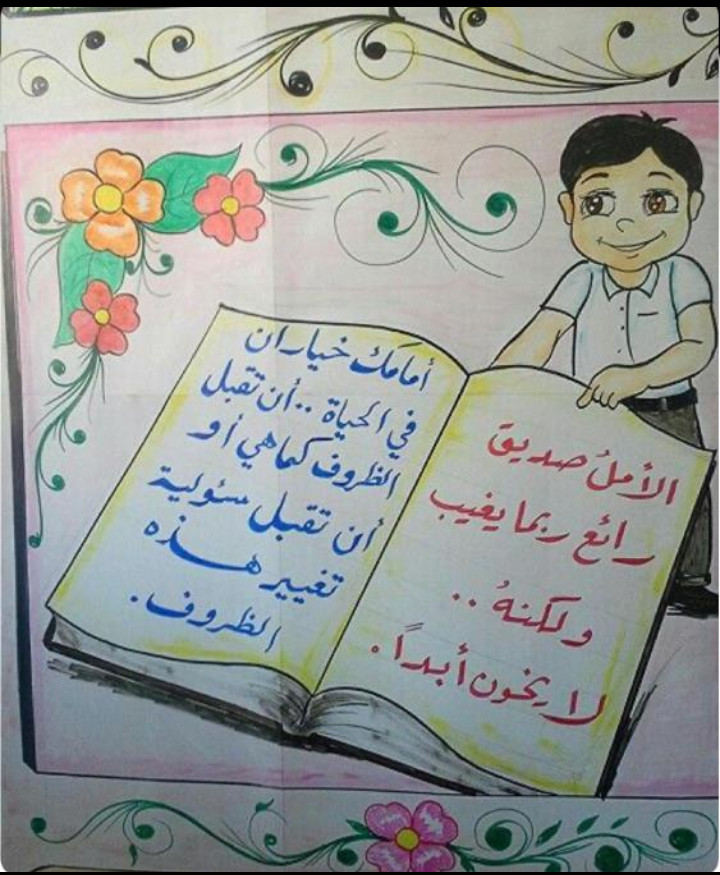 الأملُ صديق
رائع ربما يغيب
ولكنهُ ..
لا يخون أبداً.
أمامك خياران
في الحياة ..أن تقبل
الظروف كما هي أو
أن تقبل مسئولية
تغيير هذه
الظروف.